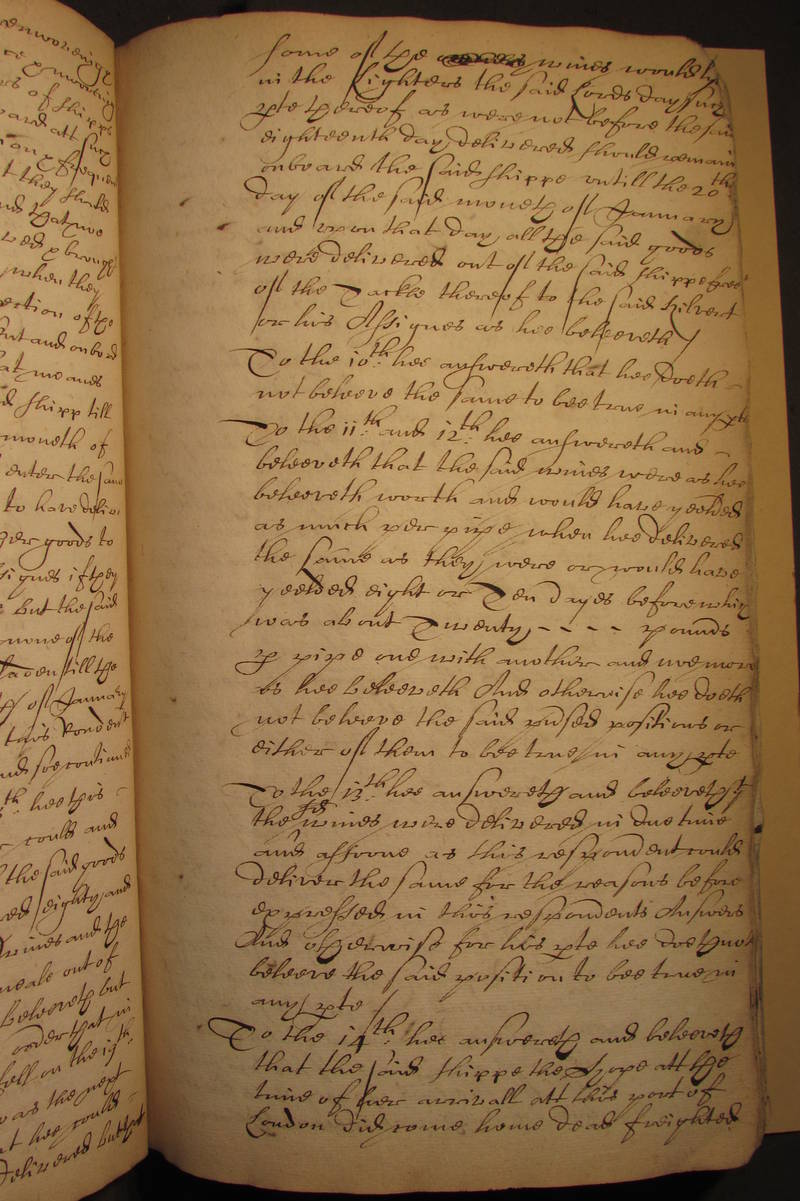 enworening
ce
rs of shipps
board att such
frequen
t they should
and that wee
ed p
when they
ection of the
but and onbord
at meanes
d shipp till
moneth of
enter the same
to have deliv
goods to
signes if they
but the said
none of the
Laden till the
of January
this Respondent
and soe continued
th hee this
could and
the said goods
ed eighty and
wines and the
out of
beleeveth but
order that in
fell on the 19th
was the next
at hee could
delivered but that
some of the wines would ly
in the Lighters the said Lords day such
pte thereof as were not before the said
eighteenth day delivered should remaine
onboard the said shippe untill the 20th
day of the said moneth of January
and upon that day all the said goods
were delivered out of the said shippe free
of the Tackle thereof to the said Gilbert
or his Assignes as hee beleeveth /
To the 10th: hee answereth that hee doeth
not beleeve the same to bee true in any pte
To the 11th: and 12th: hee answereth and
beleeveth that the said wines were as hee
beleeveth worth and would have yeelded
as much per pipe when hee delivered
the same as they were or would have
yeelded eight or Ten dayes before which
was about Twenty - - - - pounds
p pipe one with another and noe more
as hee beleeveth And otherwise hee doeth
not beleeve the said positions or
either of them to bee true in any pte
To the 13th: hee answereth and beleeveth yt
the sd wines were delivered in due time
and assoone as this respondent could
deliver the same for the reasons before
expressed in this respondents Answers
And otherwise for his pte hee doeth not
beleeve the said position to bee true in
any pte /
To the 14th: hee answereth and beleeveth
that the said shippe the Hope att the
time of her arrivall att this port of
London did come home dead freighted